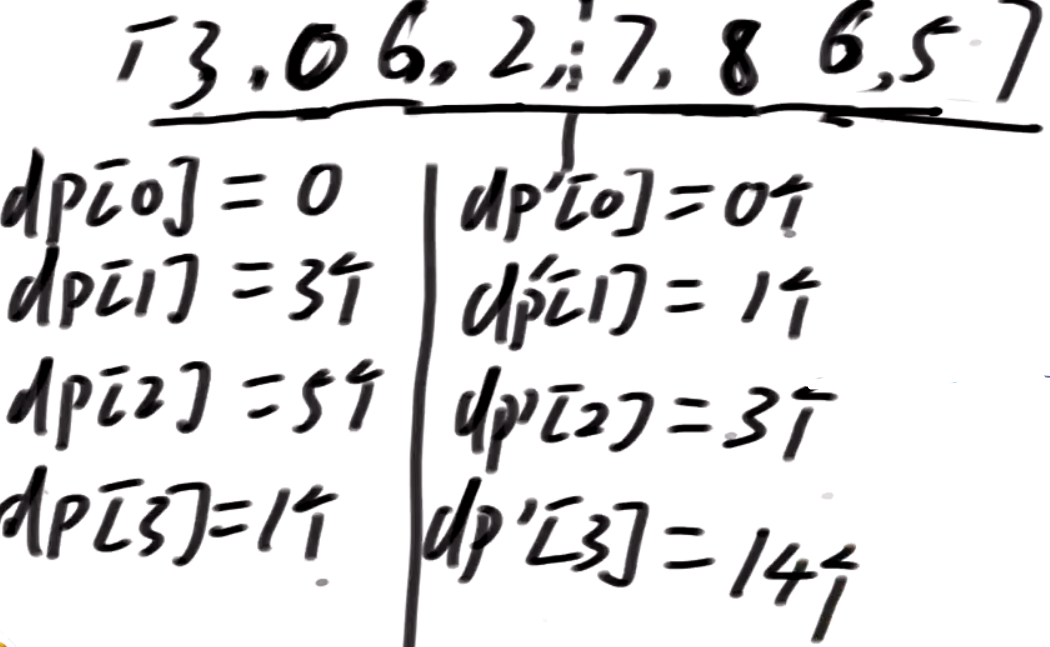 [3,0 6, 2, 7, 8 6,5]
dp[0] = 0
dp[1] = 3个
dp[2] = 5个
dp[3]=1个
dp'[0]=0个
dp'[1] = 1个
dp'[2] = 3个
dp'[3] = 14个